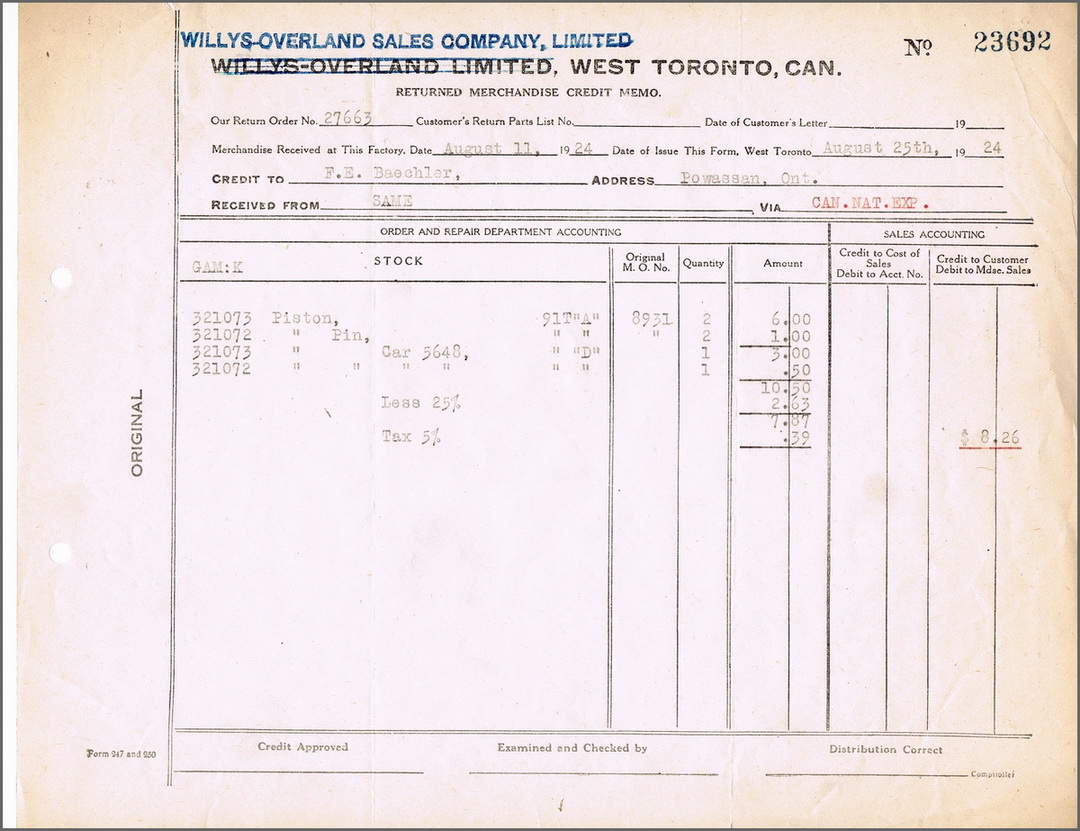 WILLYS-OVERLAND SALES COMPANY, LIMITED
No 23692
WILLYS-OVERLAND LIMITED, WEST TORONTO, CAN.
RETURNED MERCHANDISE CREDIT MEMO.
Our Return Order No. 27663 Customer's Return Parts List No. Date of Customer's Letter 19
Merchandise Received at This Factory. Date August 11, 1924 Date of Issue This Form, West Toronto August 25th, 1924
CREDIT TO F.E. Baechler, ADDRESS Powassan, Ont.
RECEIVED FROM SAME VIA CAN.NAT.EXP.
ORDER AND REPAIR DEPARTMENT ACCOUNTING SALES ACCOUNTING
GAM:K STOCK Original M. O. No. Quantity Amount Credit to Cost of Sales Debit to Acct. No. Credit to Customer Debit to Mdse. Sales
321073 Piston, 91T"A" 8931 2 6.00
321072 " Pin, " " " 2 1.00
321073 " Car 5648, " "D" 1 3.00
321072 " " " " " " 1 .50
10.50
Less 25% 2.63
7.87
Tax 5% .39 $ 8.26
ORIGINAL
Form 247 and 250
Credit Approved Examined and Checked by Distribution Correct
Comptroller